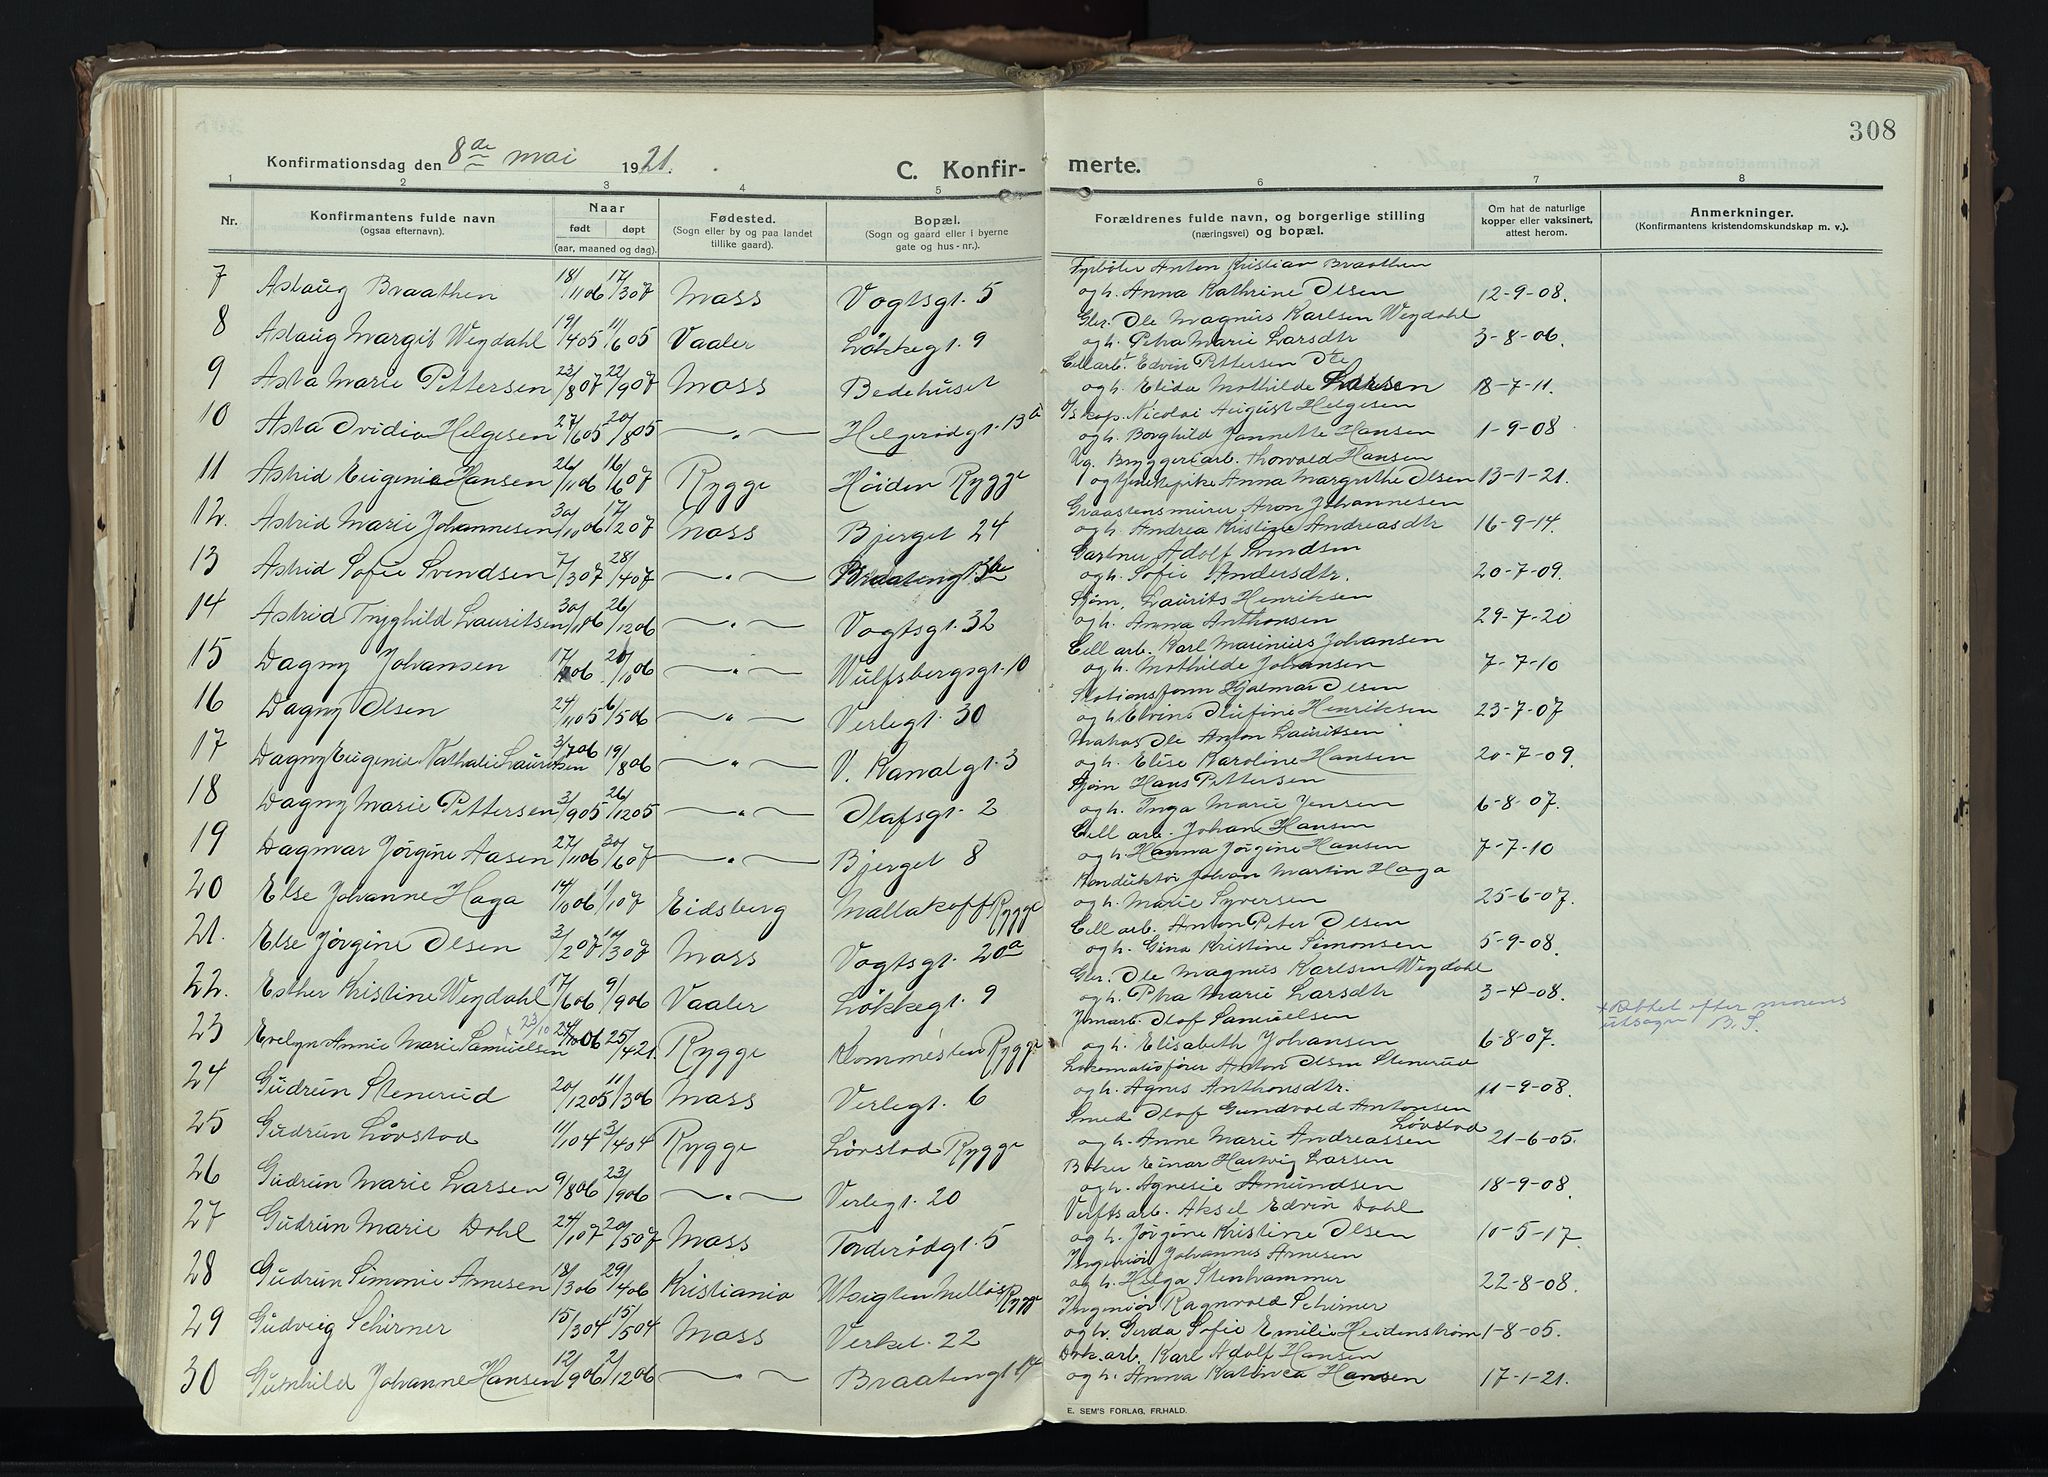 308
Konfirmationsdag den 8de mai 1921.
C. Konfir-merte.
1 2 3 4 5 6 7 8
Nr.
Konfirmantens fulde navn
(ogsaa efternavn).
Naar
født døpt
(aar, maaned og dag).
Fødested.
(Sogn eller by og paa landet
tillike gaard).
Bopæl.
(Sogn og gaard eller i byerne
gate og hus-nr.).
Forældrenes fulde navn, og borgerlige stilling
(næringsvei) og bopæl.
Om hat de naturlige
kopper eller vaksinert,
attest herom.
Anmerkninger.
(Konfirmantens kristendomskundskap m. v.).
Fyrbøter Anton Kristian Braathen
7 Aslaug Braathen 18/11 06 17/3 07 Moss Vogtsgt. 5 og h. Anna Kathrine Olsen 12-9-08.
Ole Magnus Karlsen Wegdahl
8 Aslaug Margit Wegdahl 19/4 05 11/6 05 Vaaler Løkkegt. 9 og h. Petra Marie Larsdtr 3-8-06.
Cell arb. Edvin Pettersen
9 Asta Marie Pettersen 23/8 07 22/9 07 Moss Bedehuset og h. Elida Mathilde Larsen 18-7-11.
Nicolai August Helgesen
10 Asta Ovidia Helgesen 27/6 05 20/8 05 —„— Helgerødgt. 13b og h. Borghild Jannette Hansen 1-9-08
Ug. Bryggeriarb. Thorvald Hansen
11 Astrid Eugenie Hansen 26/11 06 16/6 07 Rygge Høiden Rygge og tjenestpike Anna Margrethe Olsen 13-1-21.
Graastensmurer Aron Johannesen
12. Astrid Marie Johannesen 30/10 06 17/2 07 Moss Bjerget 24 og h. Andrea Kristine Andreasdtr 16-9-14.
Gartner Adolf Svendsen
13 Astrid Sofie Svendsen 7/3 07 28/4 07 —„— Braatengt og h. Sofie Andersdtr. 20-7-09.
Sjøm. Laurits Henriksen
14 Astrid Tryghild Lauritsen 30/11 06 26/12 06 —„— Vogtsgt. 32 og h. Anna Anthonsen 29-7-20
Cell arb. Karl Marinius Johansen
15 Dagny Johansen 17/ 06 20/10 06 —„— Wulfsbergsgt. 10 og h. Mathilde Johansen 7-7-10
Stationsform Hjalmar Olsen
16 Dagny Olsen 24/11 05 6/5 06 —„— Verlegt. 30 og h. Elvine Olufine Henriksen 23-7-07
Ole Anton Lauritsen
17 Dagny Eugenie Nathalie Lauritsen 3/7 06 19/8 06 —„— V. Kanalgt. 3 og h. Elise Karoline Hansen 20-7-09.
Sjøm Hans Pettersen
18 Dagny Marie Pettersen 3/9 05 26/12 05 —„— Olafsgt. 2 og h. Inga Marie Jensen 6-8-07.
Cell arb. Johan Hansen
19 Dagmar Jørgine Aasen 27/11 06 30/6 07 —„— Bjerget 8 og h. Hanna Jørgine Hansen 7-7-10
Konduktør Johan Martin Haga
20 Else Johanne Haga 14/10 06 1/1 07 Eidsberg Mallakoff Rygge og h. Marie Syversen 25-6-07.
Cell arb. Anton Peter Olsen
21. Else Jørgine Olsen 3/2 07 10/3 07 Moss Vogtsgt. 20a og h. Gina Kristine Simonsen 5-9-08.
Ole Magnus Karlsen Wegdahl
22. Esther Kristine Wegdahl 17/6 06 9/9 06 Vaaler Løkkegt. 9 og h. Petra Marie Larsdtr 3-4-08.
+ Rettet efter morens
utsagn B. S.
Jernarb. Olaf Samuelsen
23 Evelyn Annie Marie Samuelsen + 23/10 24/10 06 25/4 21. Rygge Klommesten Rygge og h. Elisabeth Johansen 6-8-07.
Lokomotivfører Anton Olsen Stenerud
24 Gudrun Stenerud 20/12 05 11/3 06 Moss Verlegt. 6 og h. Agnes Anthonsdtr. 11-9-08.
Smed Olaf Gundvald Antonsen
Løvstad
25 Gudrun Løvstad 11/1 04 3/4 04 Rygge Løvstad Rygge og h. Anne Marie Andreassen 21-6-05.
Baker Einar Hartvig Larsen
26 Gudrun Marie Larsen 9/8 06 23/9 06 —„— Verlegt. 20 og h. Agnesie Amundsen 18-9-08.
Verftsarb. Aksel Edvin Dahl
27 Gudrun Marie Dahl 24/1 07 20/5 07 Moss Tonderødgt. 5 og h. Jørgine Kristine Olsen 10-5-17.
Ingeniør Johannes Arnesen
28 Gudrun Simonie Arnesen 18/3 06 29/4 06 Kristiania Utsigten Melløs Rygge og h. Helga Stenhammer 22-8-08.
Ingeniør Ragnvald Schirner
29 Gudveig Schirner 15/3 04 15/5 04 Moss Verket. 22 og h. Gerda Sofie Emilie Heidenstrøm 1-8-05.
Dok. arb. Karl Adolf Hansen
30 Gunhild Johanne Hansen 12/9 06 2/12 06 —„— Braatengt 14 og h. Anna Katinca Hansen 17-1-21.
E. SEM'S FORLAG, FR.HALD.